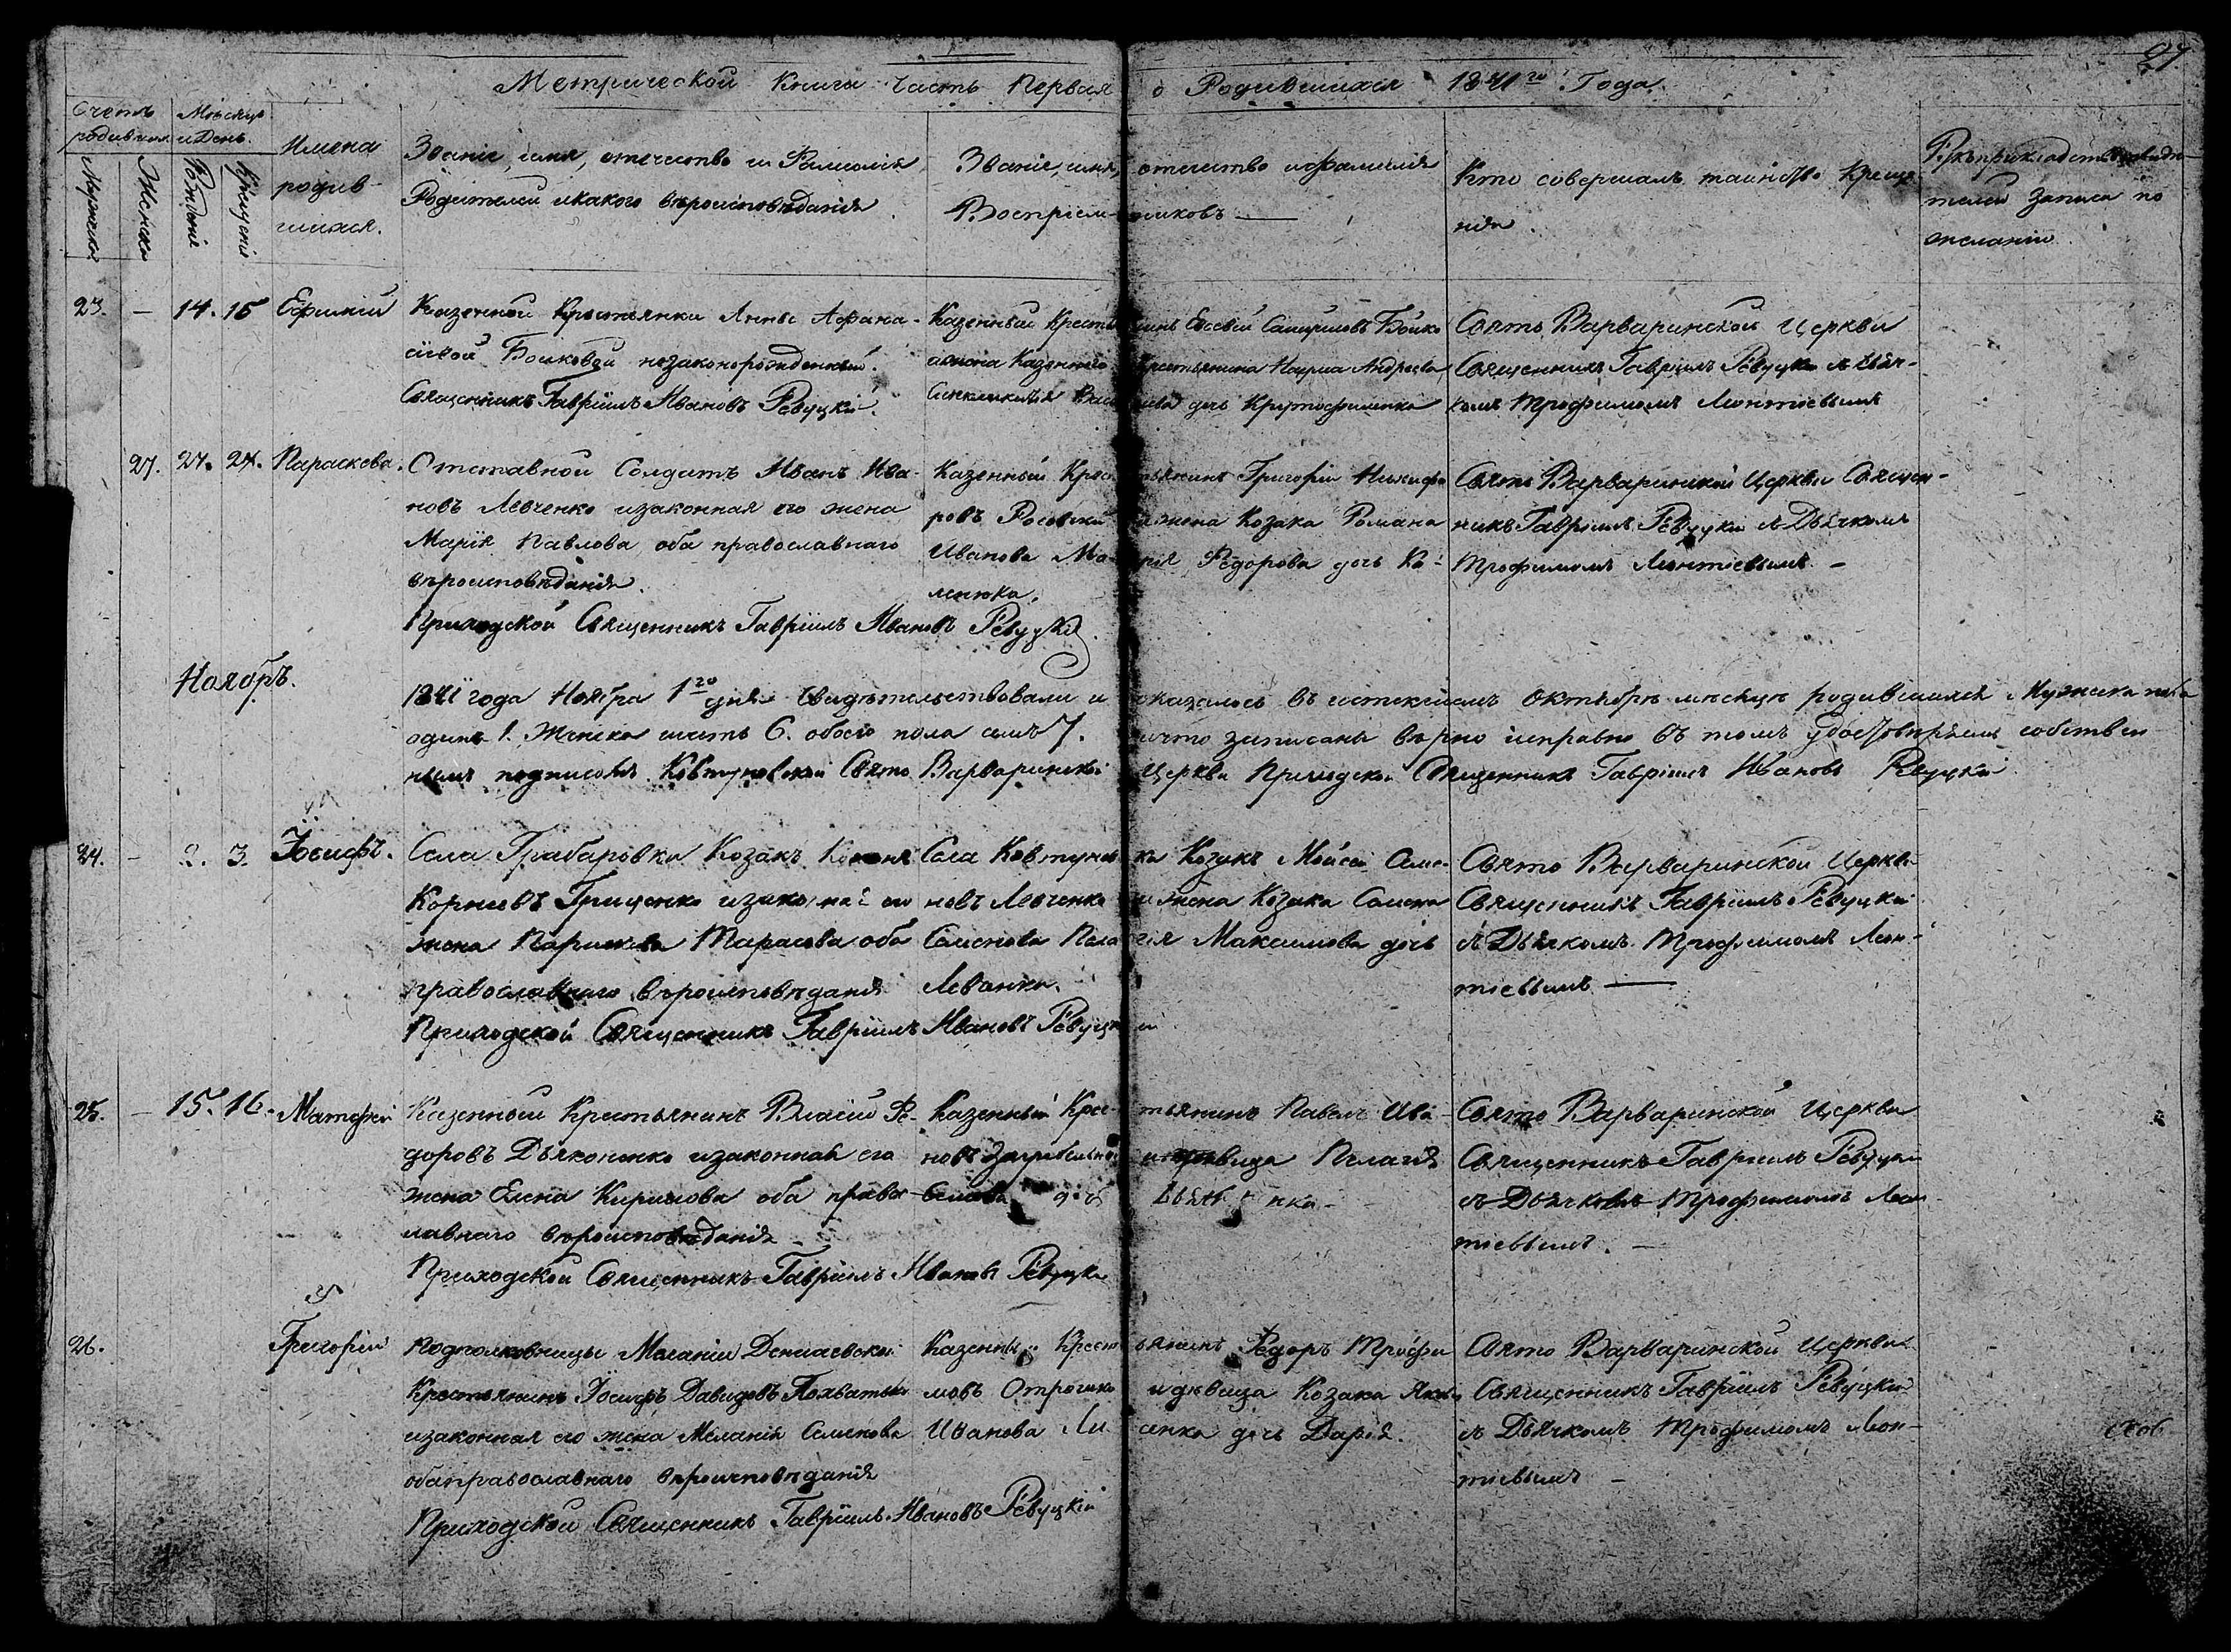 27.
Метрической Книги Часть Первая о Родившихся 1841го Года.
Счетъ родившихся
Мѣсяцъ и День.
Мужеска
Женска
Рожденіе
Крещеніе
Имена родив-
шихся.
Званіе, имя, отечество и Фамилія
Родителей и какого вѣроисповѣданія
Званіе, имя, отечество и фамилія
Воспріемниковъ
Кто совершалъ таинство Креще-
нія.
телей записи по
желанію
23. — 14. 15 Ефимій
Казенной Крестьянки Анны Афана-
сіевой Бойковой незаконорожденный.
Священникъ Гавріилъ Ивановъ Ревуцкій.
Казенный Крестьянинъ Евсевій Бойко
а жена Казеннаго Крестьянина Наума Андреева
дочь
Свято Варваринской Церкви
Священникъ Гавріилъ Ревуцкій съ Дьяч-
комъ Трофимомъ Леонтіевымъ
27. 27. 27. Параскева.
Отставной Солдатъ Иванъ Ива-
новъ Левченко и законная его жена
Марія Павлова оба православнаго
вѣроисповѣданія.
Приходской Священникъ Гавріилъ Ивановъ Ревуцкій
Казенный Крестьянинъ Григорій Никифо
ровъ Росовскій и жена Козака Романа
Иванова Марія Федорова дочь Ка-
ленюка.
Свято Варваринской Церкви Священ-
никъ Гавріилъ Ревуцкій съ Дьячкомъ
Трофимомъ Леонтіевымъ. —
Ноябрь.
1841 года Ноября 1го дня Свидѣтельствовали и оказалось въ истекшемъ октябрѣ мѣсяцѣ родившихся Мужска пола
одинъ 1. Женска шесть 6. обоего пола семь 7. и что записаны вѣрно исправно въ томъ удостовѣряемъ собствен
нымъ подписомъ Ковтуновской Свято Варваринской Церкви Приходской Священникъ Гавріилъ Ивановъ Ревуцкій
24. — 2. 3. Іосифъ.
Села Грабаровки Козакъ
Корнеевъ Грищенко и законная его
жена Параскева Тарасова оба
православнаго вѣроисповѣданія
Приходской Священникъ Гавріилъ Ивановъ Ревуцкій
Села Ковтуновки Козакъ Мойсей Семе-
новъ Левченко и жена Козака Семена
Семенова Пелагія Максимова дочь
Леванка.
Свято Варваринской Церкви
Священникъ Гавріилъ Ревуцкій
съ Дьячкомъ Трофимомъ Леон-
тіевымъ —
25. — 15. 16. Матфей
Казенный Крестьянинъ Власій Фе-
доровъ Дьяконенко и законная его
жена Елена Кирилова оба правос
лавнаго вѣроисповѣданія
Приходской Священникъ Гавріилъ Ивановъ Ревуцкій
Казенный Крестьянинъ Павелъ Ива-
новъ и вдовица Пелагія
Свято Варваринской Церкви
Священникъ Гавріилъ Ревуцкій
съ Дьячкомъ Трофимомъ Леон
тіевымъ. —
26. Григорій
Подполковницы Меланіи Денисевской
Крестьянинъ Іосифъ Давидовъ
и законная его жена Меланія Семенова
оба православнаго вѣроисповѣданія
Приходской Священникъ Гавріилъ Ивановъ Ревуцкій
Казенный Крестьянинъ Федоръ Трофи
мовъ и дѣвица Козака Якова
Иванова Лисенка дочь Дарія.
Свято Варваринской Церкви
Священникъ Гавріилъ Ревуцкій
съ Дьячкомъ Трофимомъ Леон-
тіевымъ —